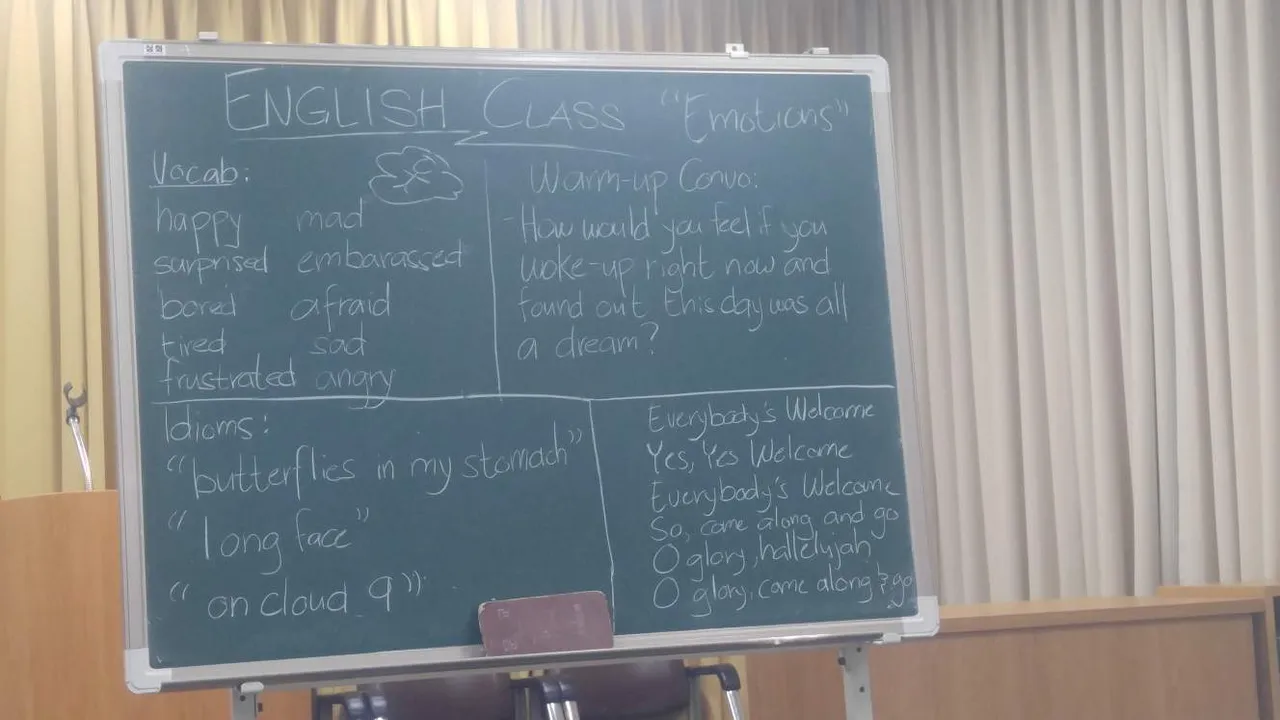 ENGLISH CLASS "Emotions"
Vocab:
happy mad
surprised embarassed
bored afraid
tired sad
frustrated angry
Warm-up Convo:
- How would you feel if you
woke-up right now and
found out this day was all
a dream?
Idioms:
"butterflies in my stomach"
"long face"
"on cloud 9"
Everybody's Welcome
Yes, Yes Welcome
Everybody's Welcome
So, come along and go
O glory, hallelujah
O glory, come along & go